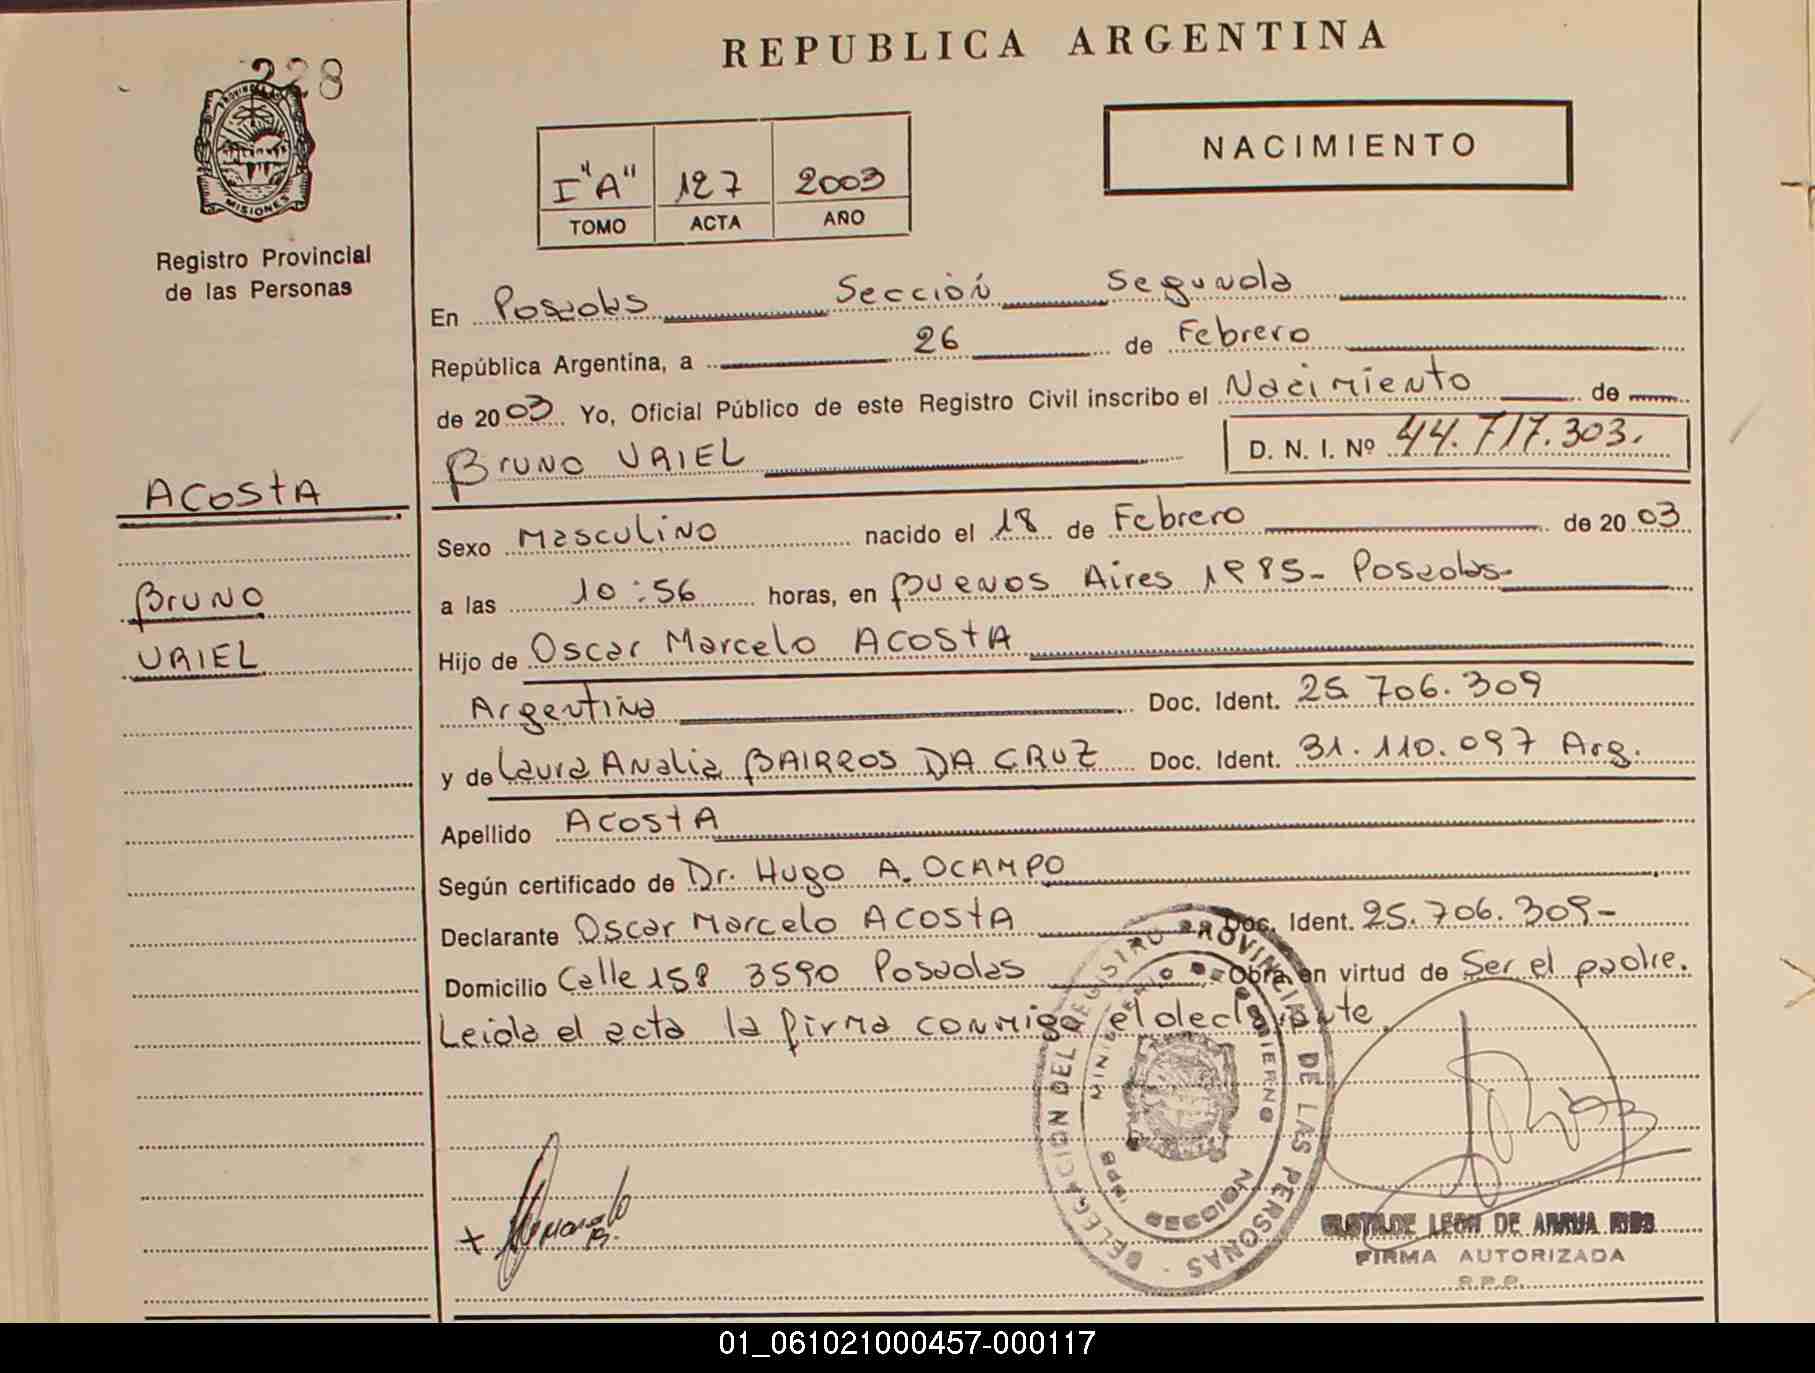 228
PROVINCIA DE
MISIONES
Registro Provincial
de las Personas
ACOSTA
BRUNO
URIEL
REPUBLICA ARGENTINA
NACIMIENTO
I "A" 127 2003
TOMO ACTA AÑO
En Posadas Sección Segunda
República Argentina, a 26 de Febrero
de 2003. Yo, Oficial Público de este Registro Civil inscribo el Nacimiento de
BRUNO URIEL D. N. I. Nº 44.717.303.
Sexo Masculino nacido el 18 de Febrero de 2003
a las 10:56 horas, en Buenos Aires 1985- Posadas-
Hijo de Oscar Marcelo ACOSTA
Argentina Doc. Ident. 25.706.309
y de Laura Analia BAIRROS DA CRUZ Doc. Ident. 31.110.097 Arg.
Apellido ACOSTA
Según certificado de Dr. Hugo A. OCAMPO
Declarante Oscar Marcelo ACOSTA Doc. Ident. 25.706.309-
Domicilio Calle 158 3590 Posadas Obra en virtud de Ser el padre.
Leida el acta la firma conmigo el declarante.
DELEGACION DEL REGISTRO PROVINCIAL DE LAS PERSONAS
MINISTERIO DE GOBIERNO
MISIONES
FIRMA AUTORIZADA
R.P.P.
01_061021000457-000117